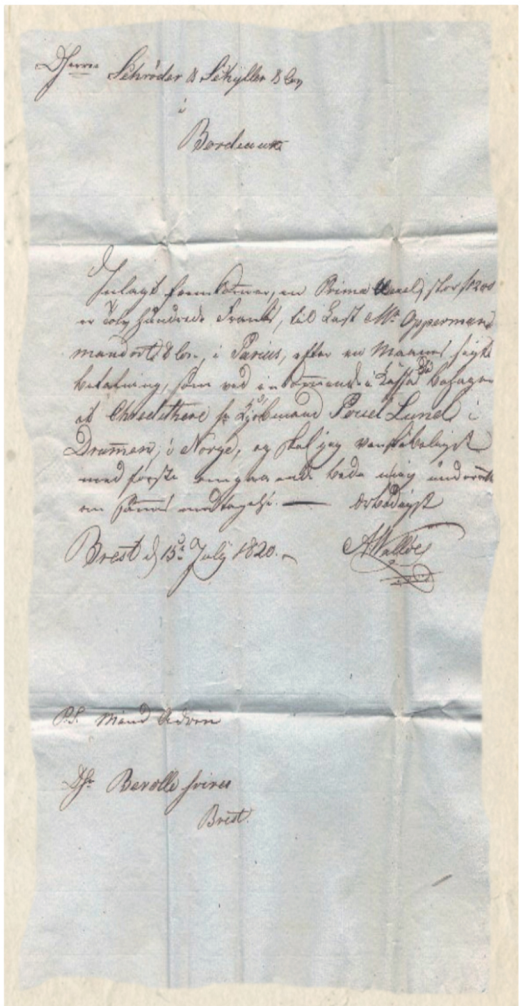 DHerrer Schröder & Schyller & Co,
i
Bordeaux
Inlagt fremkommer, en Prima Vexel, stor f 1200
er Tolv hundrede Frank, til Last Mr. Opperman
mandrot & Co., i Pariis, efter en Maaneds sigt
betalning, som ved inkommende i Kassa De behager
at Chreditere hr Kjøbmand Povel Lunel i
Dramen, i Norge, og skal jeg venskabeligst
med første omgaaende bede mig underrett
om sammes modtagelse. — ærbødigst
Brest d 15de July 1820. AWalløe
P.S. Miend Advis
DHr. Berolle freres
Brest.